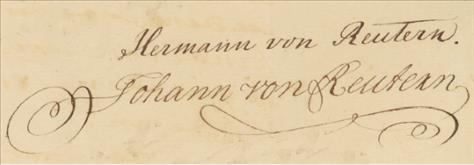 Hermann von Reutern.
Johann von Reutern